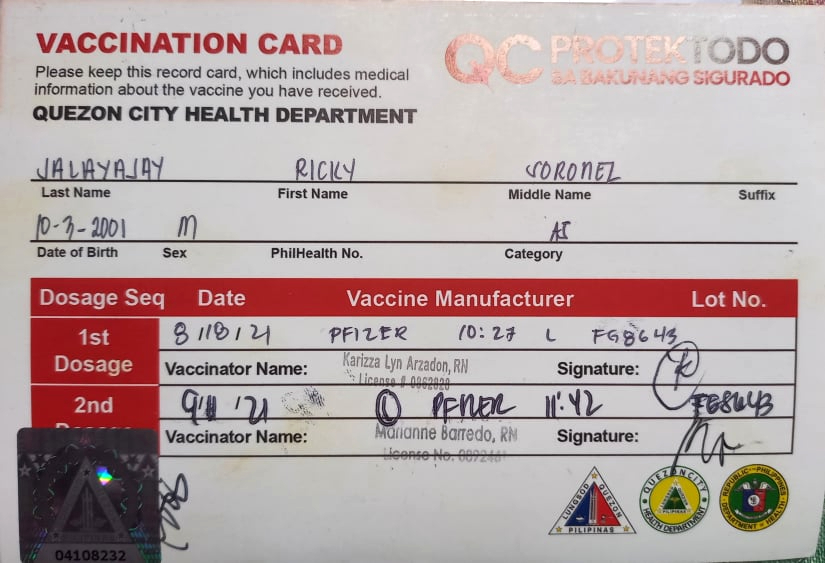 VACCINATION CARD
QC PROTEKTODO
SA BAKUNANG SIGURADO
Please keep this record card, which includes medical
information about the vaccine you have received.
QUEZON CITY HEALTH DEPARTMENT
JALAYAJAY RICKY SORONEL
Last Name First Name Middle Name Suffix
10-3-2001 M
Date of Birth Sex PhilHealth No. Category
Dosage Seq Date Vaccine Manufacturer Lot No.
1st Dosage 8/18/21 PFIZER 10:27 L FG8643
Vaccinator Name: Karizza Lyn Arzadon, RN Signature:
License #
2nd PFIZER 11:42 FG8643
Vaccinator Name: Marianne Barredo, RN Signature:
License No.
04108232
LUNGSOD QUEZON PILIPINAS
QUEZON CITY HEALTH DEPARTMENT PILIPINAS
REPUBLIC PHILIPPINES DEPARTMENT of HEALTH